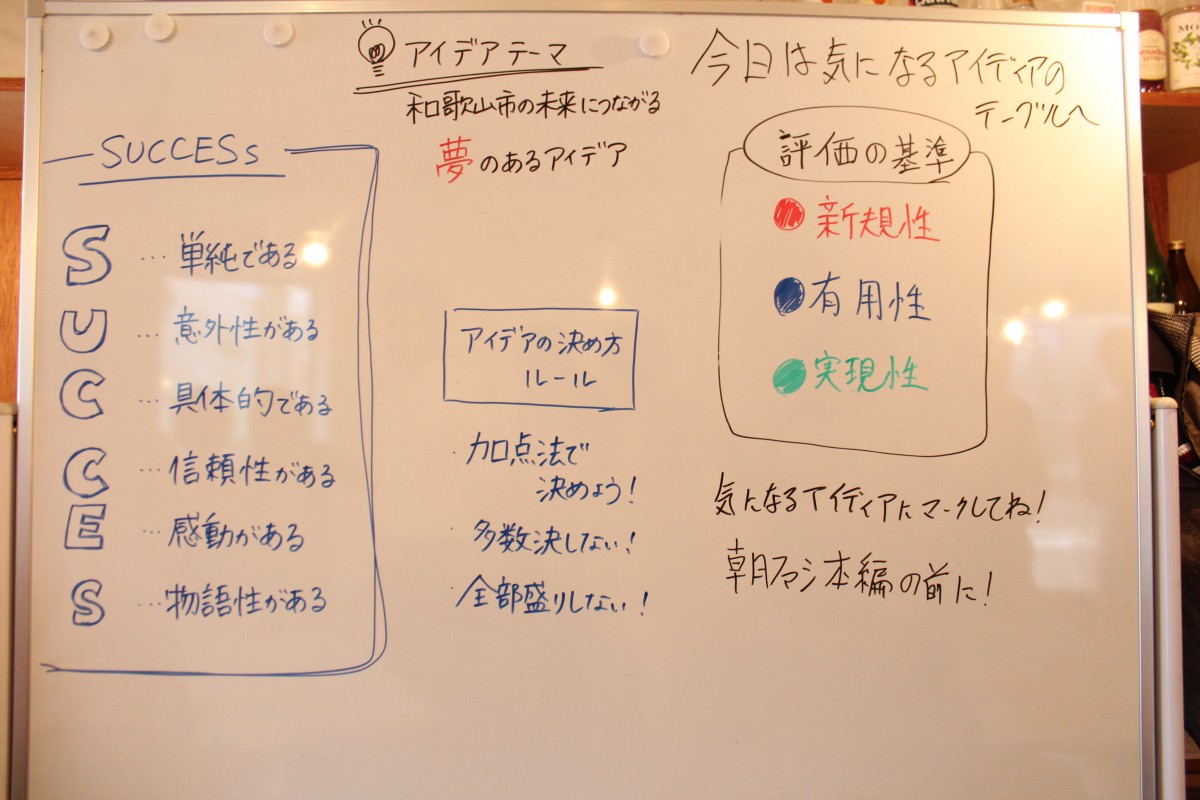 アイデアテーマ
和歌山市の未来につながる
夢のあるアイデア
今日は気になるアイディアの
テーブルへ
SUCCESs
S … 単純である
U … 意外性がある
C … 具体的である
C … 信頼性がある
E … 感動がある
S … 物語性がある
アイデアの決め方
ルール
・加点法で
決めよう!
・多数決しない!
・全部盛りしない!
評価の基準
新規性
有用性
実現性
気になるアイディアにマークしてね!
朝ファシ本編の前に!